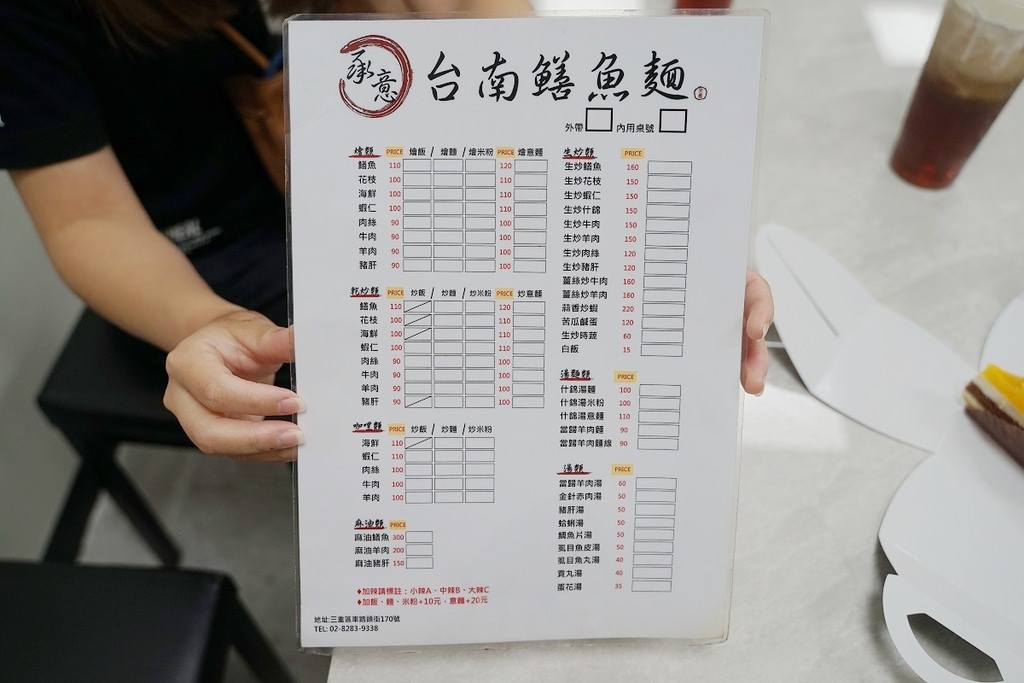 承意 台南鱔魚麵
外帶 內用桌號
燴類 PRICE 燴飯 / 燴麵 / 燴米粉 PRICE 燴意麵
鱔魚 110 120
花枝 100 110
海鮮 100 110
蝦仁 100 110
肉絲 90 100
牛肉 90 100
羊肉 90 100
豬肝 90 100
乾炒類 PRICE 炒飯 / 炒麵 / 炒米粉 PRICE 炒意麵
鱔魚 110 120
花枝 110 110
海鮮 110 110
蝦仁 100 110
肉絲 90 100
牛肉 90 100
羊肉 90 100
豬肝 90 100
咖哩類 PRICE 炒飯 / 炒麵 / 炒米粉
海鮮 110
蝦仁 110
肉絲 100
牛肉 100
羊肉 100
麻油類 PRICE
麻油鱔魚 300
麻油羊肉 200
麻油豬肝 150
♦加辣請標註：小辣A、中辣B、大辣C
♦加飯、麵、米粉+10元，意麵+20元
地址:三重區車路頭街170號
TEL: 02-8283-9338
生炒類 PRICE
生炒鱔魚 160
生炒花枝 150
生炒蝦仁 150
生炒什錦 150
生炒牛肉 150
生炒羊肉 150
生炒肉絲 120
生炒豬肝 120
薑絲炒牛肉 160
薑絲炒羊肉 160
蒜香炒蝦 220
苦瓜鹹蛋 120
生炒時蔬 60
白飯 15
湯麵類 PRICE
什錦湯麵 100
什錦湯米粉 100
什錦湯意麵 110
當歸羊肉麵 90
當歸羊肉麵線 90
湯類 PRICE
當歸羊肉湯 60
金針赤肉湯 50
豬肝湯 50
蛤蜊湯 50
鯛魚片湯 50
虱目魚皮湯 50
虱目魚丸湯 40
貢丸湯 40
蛋花湯 35